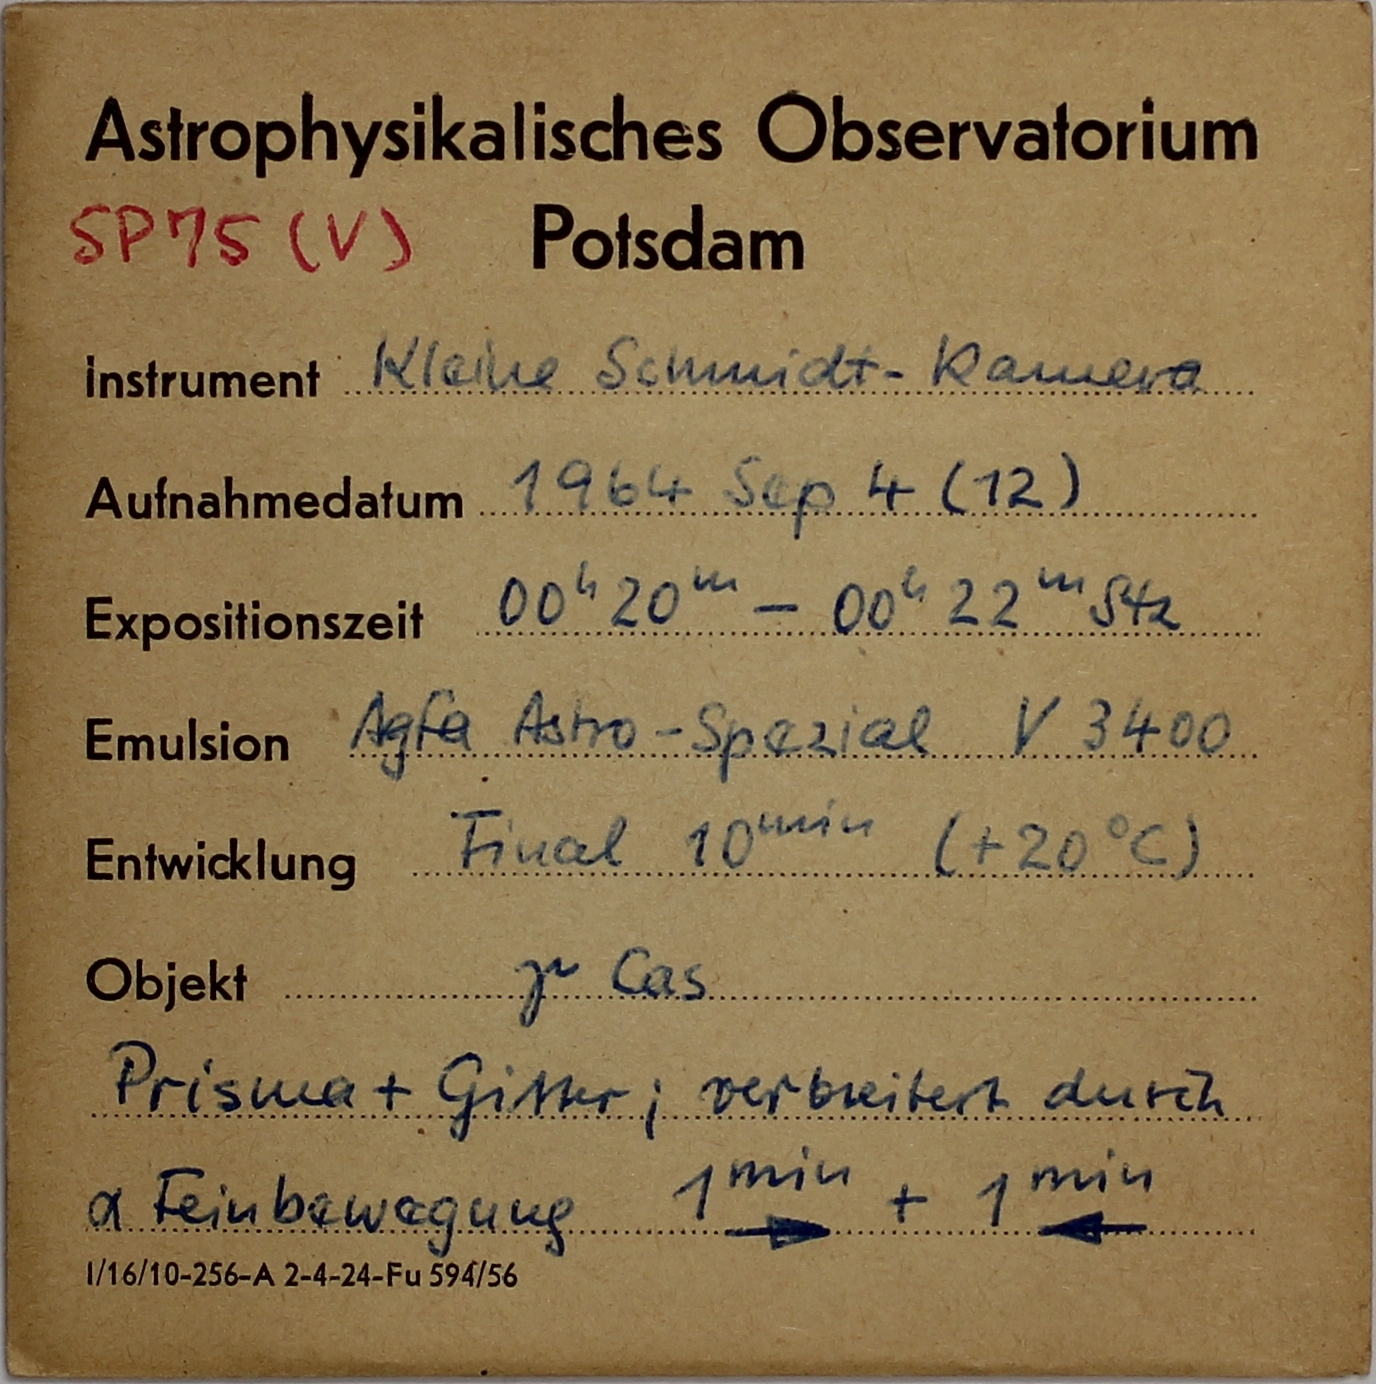 Astrophysikalisches Observatorium
SP75 (V) Potsdam
Instrument Kleine Schmidt-Kamera
Aufnahmedatum 1964 Sep 4 (12)
Expositionszeit 00h 20m – 00h 22m Stz
Emulsion Agfa Astro-Spezial V 3400
Entwicklung Final 10min (+20°C)
Objekt γ Cas
Prisma + Gitter; verbreitert durch
α Feinbewegung 1min → + 1min ←
I/16/10-256-A 2-4-24-Fu 594/56